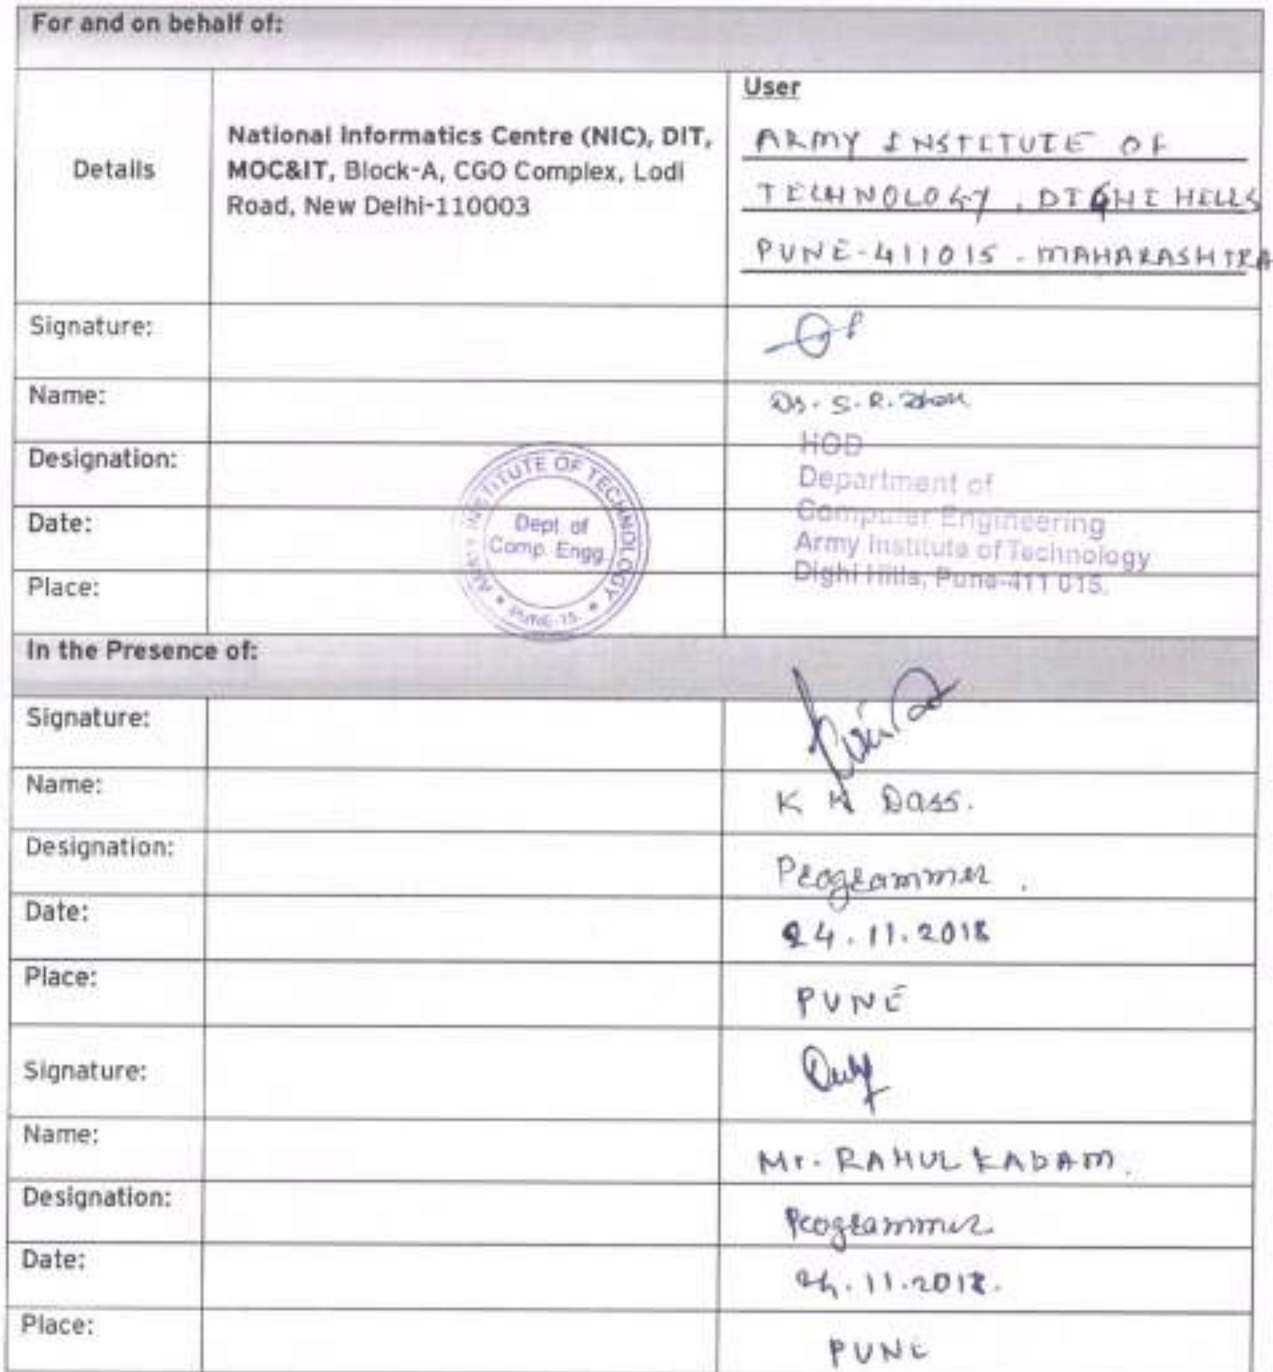 For and on behalf of:
Details
National Informatics Centre (NIC), DIT,
MOC&IT, Block-A, CGO Complex, Lodi
Road, New Delhi-110003
User
ARMY INSTITUTE OF
TECHNOLOGY, DIGHI HILLS
PUNE-411015 - MAHARASHTRA
Signature:
Name:
Dr. S. R.
Designation:
HOD
Department of
Computer Engineering
Army Institute of Technology
Dighi Hills, Pune-411 015.
ARMY INSTITUTE OF TECHNOLOGY
Dept. of
Comp. Engg.
PUNE-15.
Date:
Place:
In the Presence of:
Signature:
Name:
K K Dass.
Designation:
Programmer.
Date:
24.11.2018
Place:
PUNE
Signature:
Name:
Mr. RAHUL KADAM.
Designation:
Programmer.
Date:
24.11.2018.
Place:
PUNE